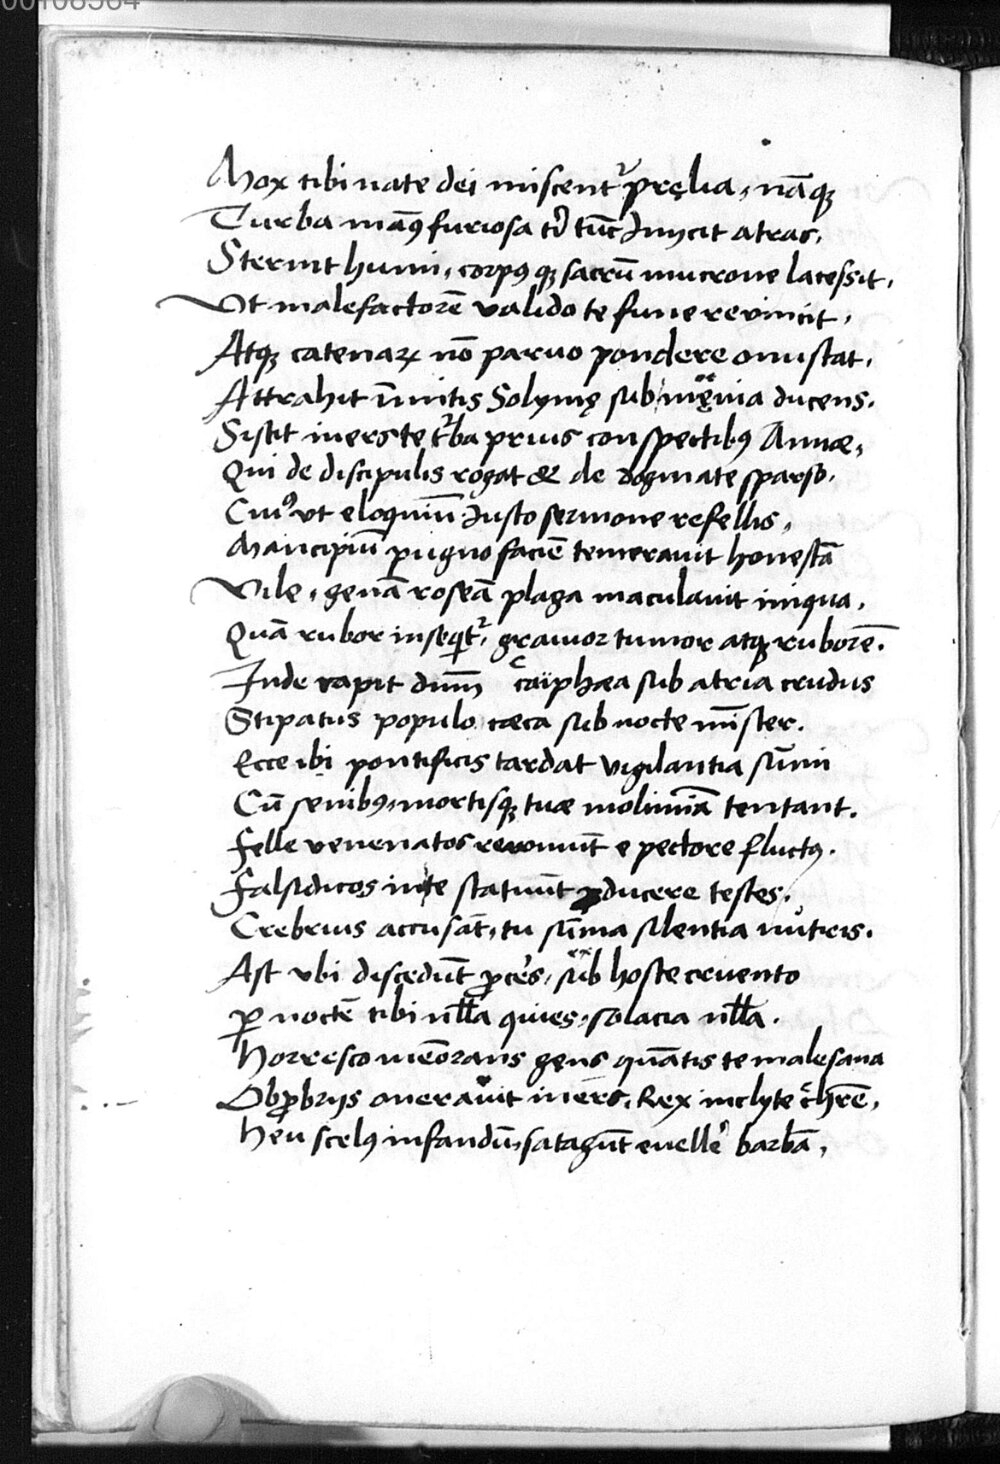 00108564
Mox tibi nate dei miscentᷣ pręlia, nāqꝫ
Turba manꝰ furiosa tibi tūc Inijcit atras,
Sternit humi, corpꝰqꝫ sacrū mucrone lacessit,
Vt malefactorē valido te fune revincit,
Atqꝫ catenaꝝ nō parvo pondere onustat,
Attrahit īmitis Solymę sub męnia ducens.
Sistit iners te tᷣba prius conspectibꝰ Annæ,
Qui de discipulis rogat & de dogmate sparso,
Cuiꝰ vt eloquiū Justo sermone refellis,
Mancipiū pugno faciē temeravit honestā
Vile, genā roseā plaga maculavit iniqua,
Quā rubor inseqtᷣ, gravior tumor atqꝫ ruborē.
Inde rapit dnm̄ caïphæa sub atria crudus
Stipatus populo cæca sub nocte mīster.
Ecce ibi pontificis tardat vigilantia sūmi
Cū senibꝰ, mortisqꝫ tuæ molimīa tentant.
Felle venenatos revomūt e pectore fluctꝰ.
Falsidicos in te statuūt ꝓducere testes,
Crebrius accusāt, tu sūma silentia nutris.
Ast vbi discedūt ꝓceres, sub hoste cruento
ꝑ noctē tibi nlla quies, solacia nlla.
Horresco memorans gens quātis te malesana
Obꝓbrijs oneravit iners, Rex inclyte chrē,
Heu scelꝰ infandū, satagūt evellē barbā,